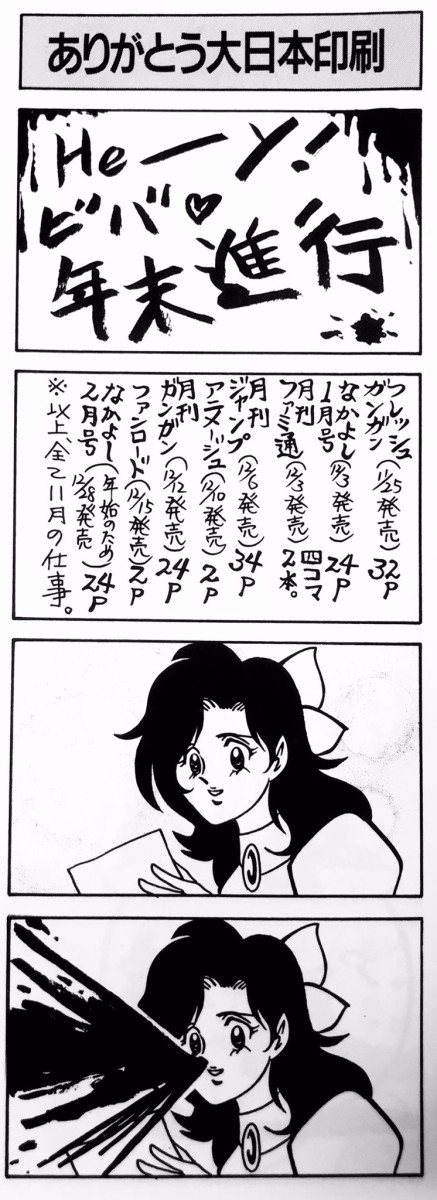 ありがとう大日本印刷
Heーン!
ビバ♡
年末進行
フレッシュ
ガンガン(11/25発売)32P
なかよし
1月号(12/3発売)24P
月刊
ファミ通(12/3発売)四コマ2本。
月刊
ジャンプ(12/6発売)34P
アニメージュ(12/10発売)2P
月刊
ガンガン(12/12発売)24P
ファンロード(12/15発売)2P
なかよし(年始のため
2月号 12/28発売)24P
※以上、全て11月の仕事。